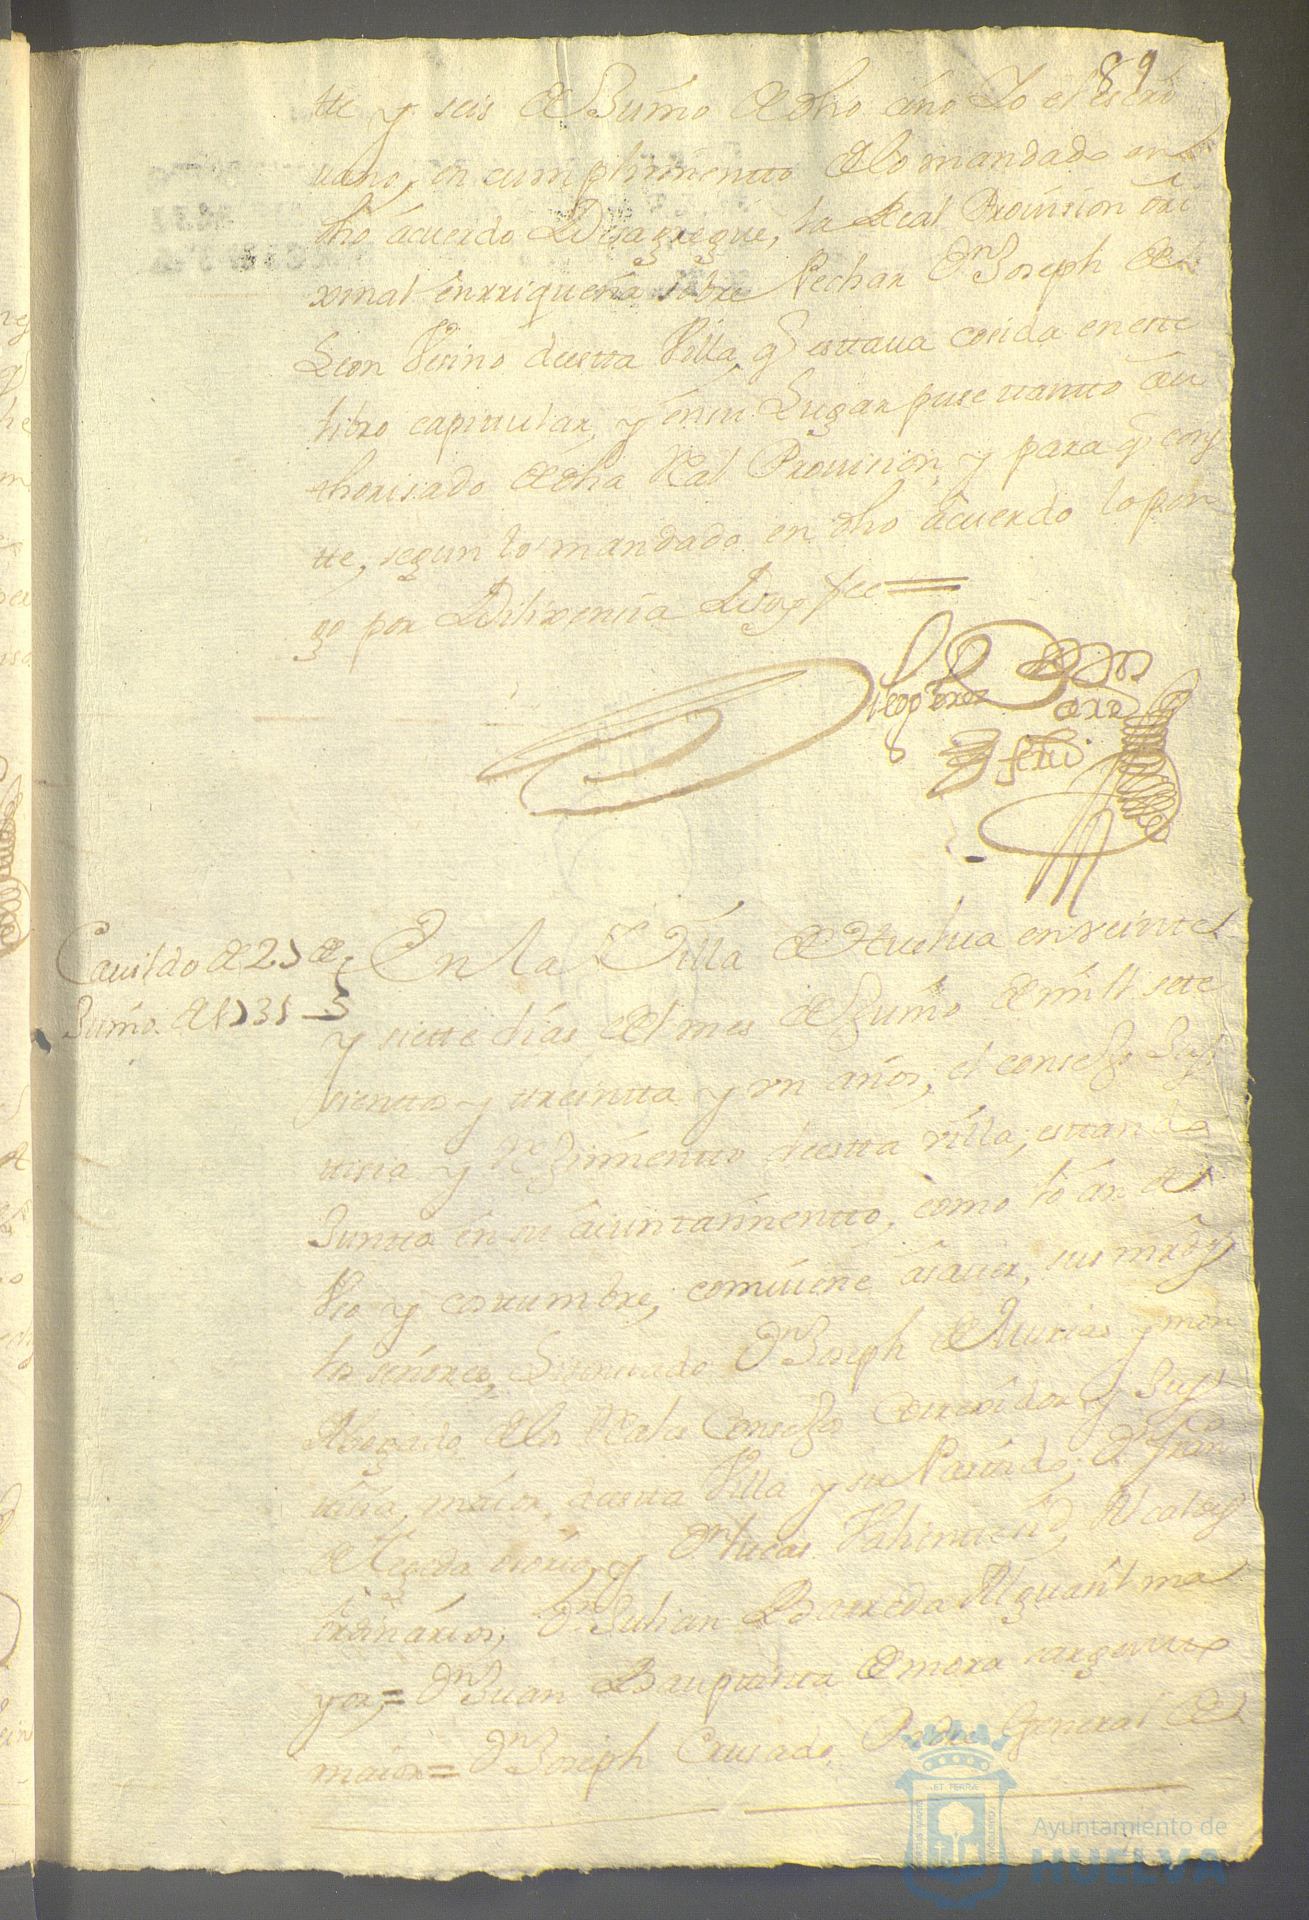 89
tte y seis de Junio de dho año Yo el escri
uano, en cumplimientto de lo mandado en
dho acuerdo Desagregue, la Real Prouission ori
xinal enrriqueña sobre Pechar Dn Joseph de
Leon Vesino deestta Villa, q esttaua cosida en este
libro capitular, y en su Lugar puse ttantto au
thorisado de dha Real Prouision, y para q cons
tte, segun lo mandado en dho acuerdo lo pon
go por Dilixencia Doy fee
Cauildo de 27 de
Junio de 1731
En la Villa de Huelua en veinte
y siette dias del mes de Junio de mill sete
cientos y treintta y un años, el consejo Jus
tisia y Rejimientto deestta villa, estando
Juntto en su aiunttamientto, como lo an de
Vso y costumbre, combiene asauer, sus mrds
los señores, Lisenciado Dn Joseph de Murias y mon
Abogado de los Reales Consejos Correxidor y Jus
tisia maior deestta Villa y su Partido, Dn Fran
de Tejada osorio, y Dn Lucas Alcaldes
ordinarios, Dn Julian Barreda Alguasil ma
yor = Dn Juan Bauptista de mora sargento
maior = Dn Joseph Crusado Padre General de
Ayuntamiento de
HUELVA